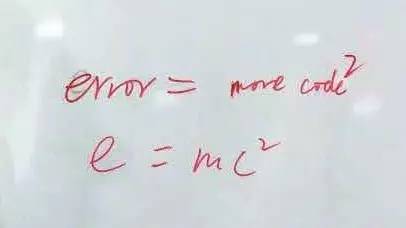 error = more code²
e = mc²